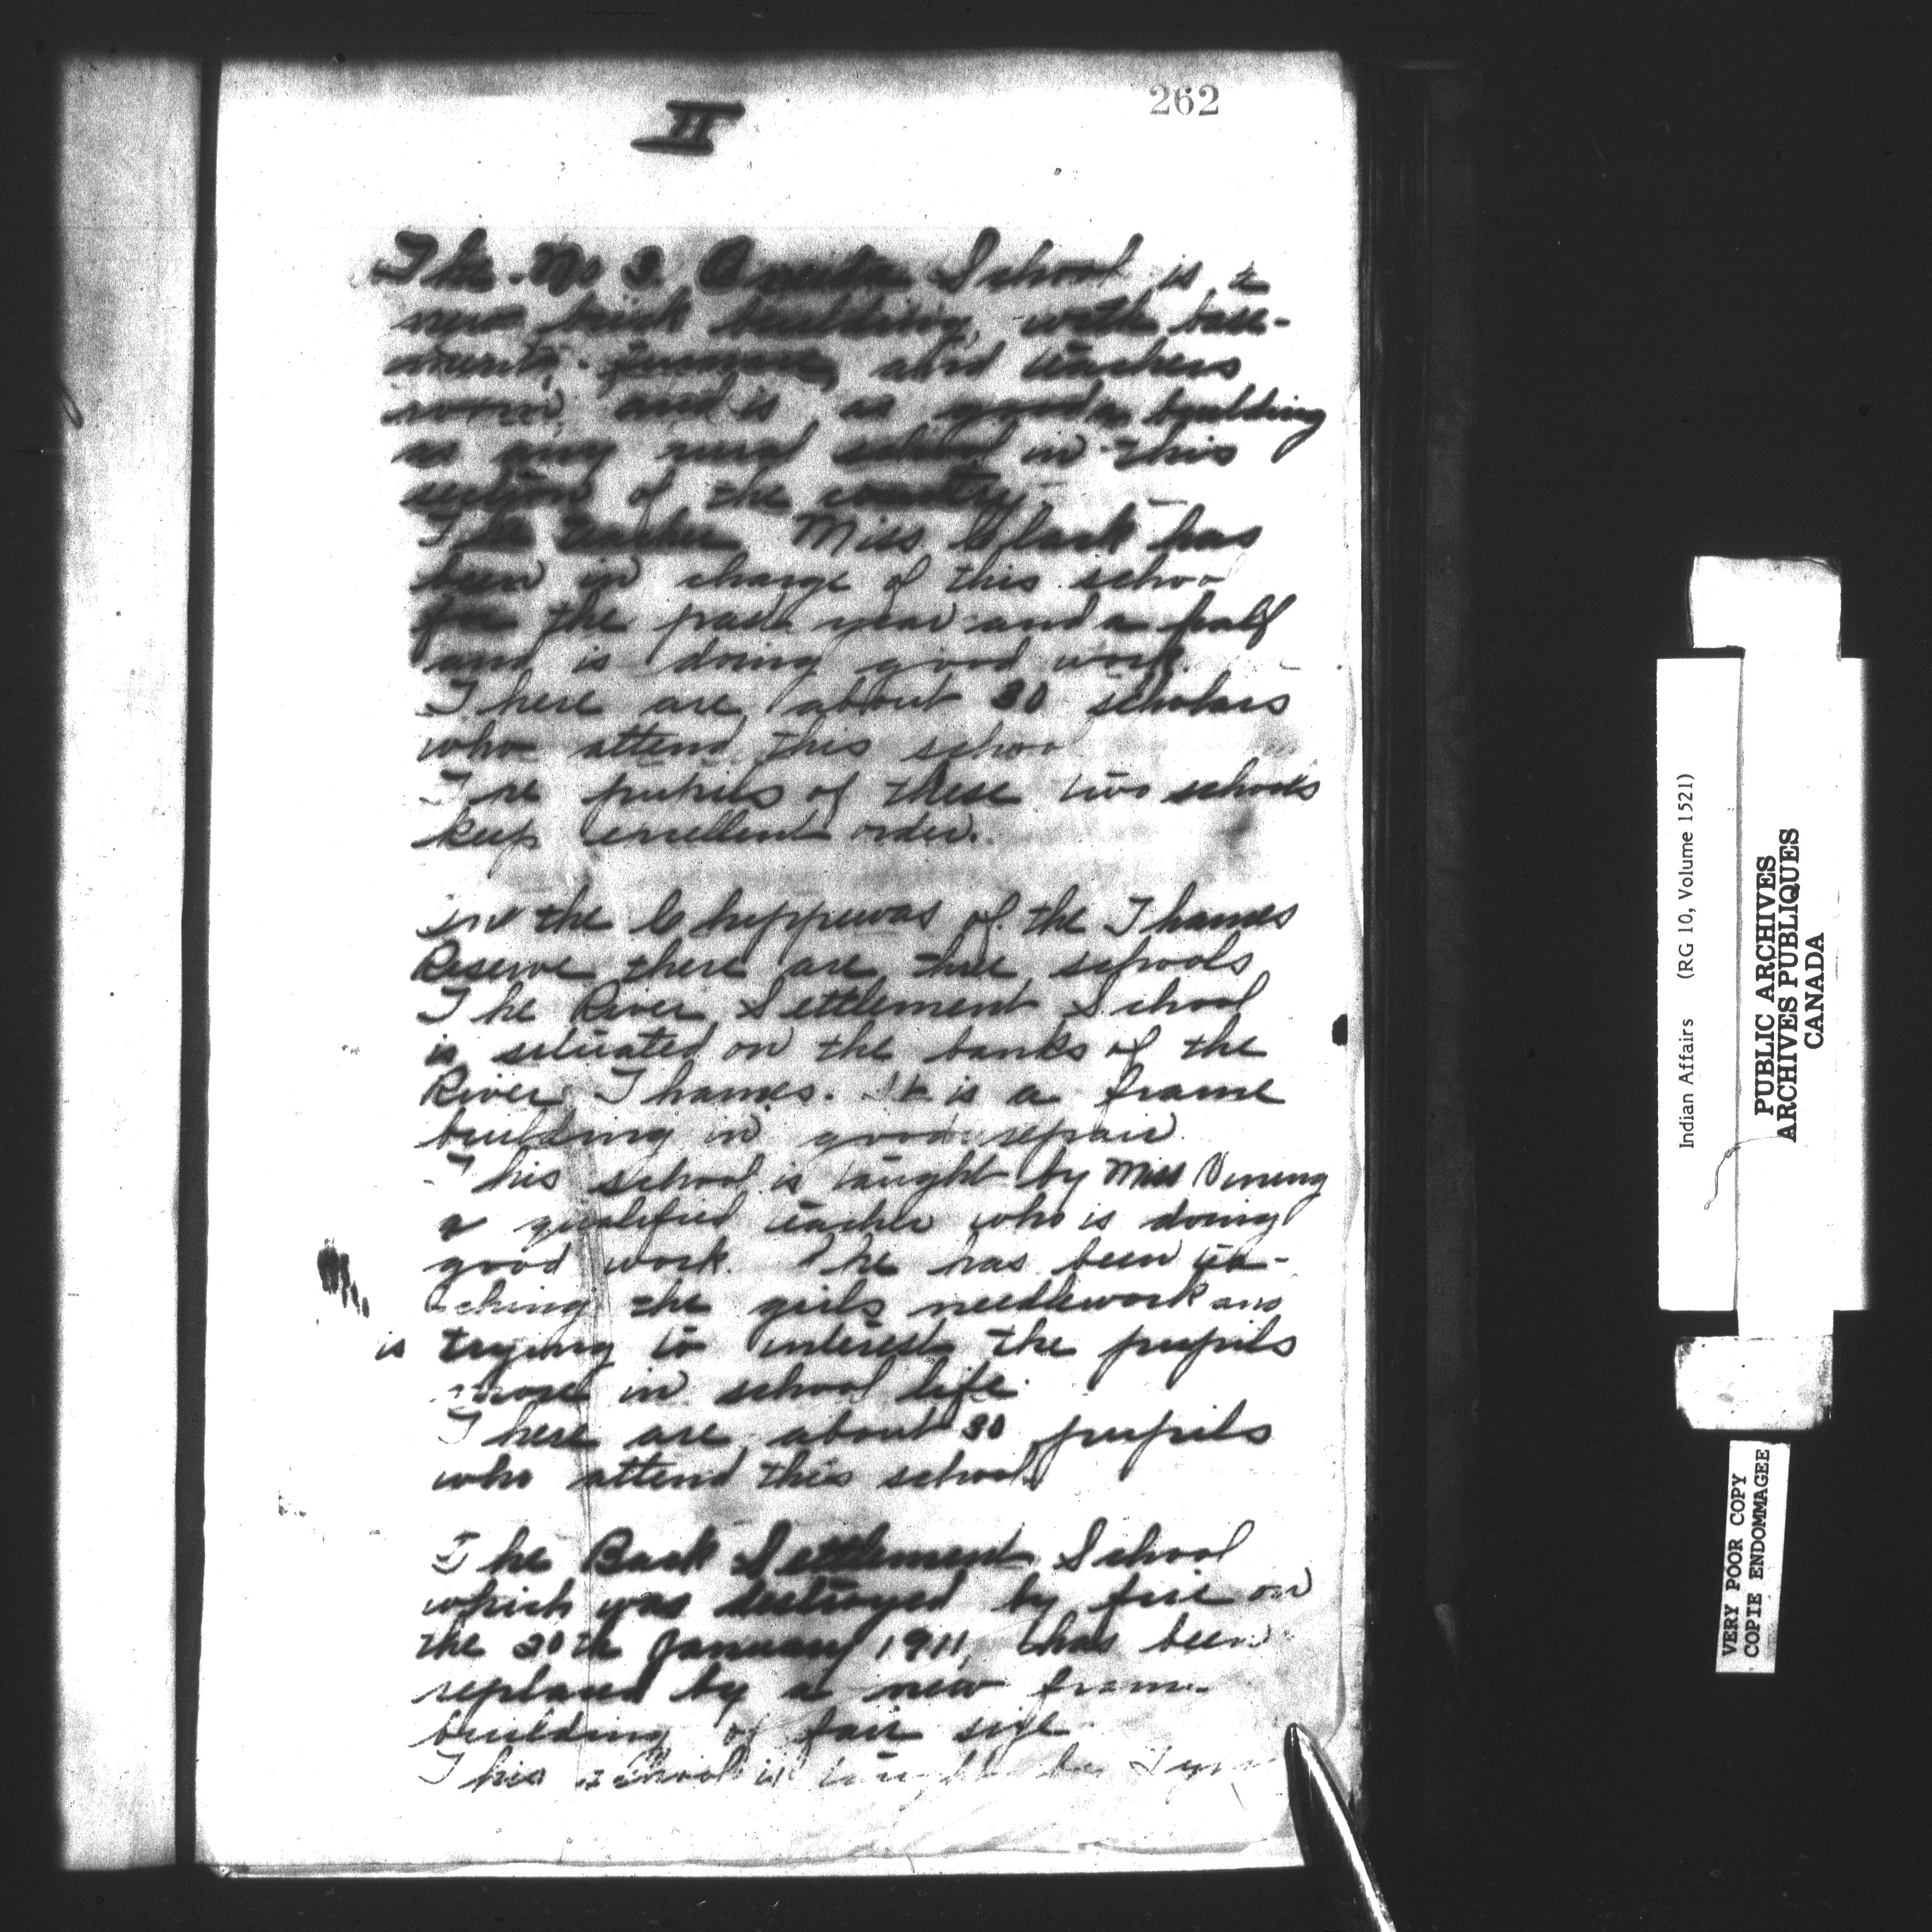 262
II
The No 3. Oneida School is a
new brick building, with base-
ment, furnace, and teachers
room, and is as good a building
as any rural school in this
section of the country.
The teacher Miss Clark has
been in charge of this schoo
for the past year and a half
and is doing good work.
There are about 30 scholars
who attend this schoo
The pupils of these two schools
keep excellent order.
in the Chippewas of the Thames
Reserve there are three schools
The River Settlement School
is situated on the banks of the
River Thames. It is a frame
building in good repair
This school is taught by Miss Vining
a qualified teacher who is doing
good work. She has been tea-
ching the girls needlework and
is trying to interest the pupils
more in school life.
There are about 30 pupils
who attend this school
The Back Settlement School
which was destroyed by fire on
the 30th January 1911, has been
replaced by a new frame
building of fair size
This school is taught by
Indian Affairs (RG 10, Volume 1521)
PUBLIC ARCHIVES
ARCHIVES PUBLIQUES
CANADA
VERY POOR COPY
COPIE ENDOMMAGEE